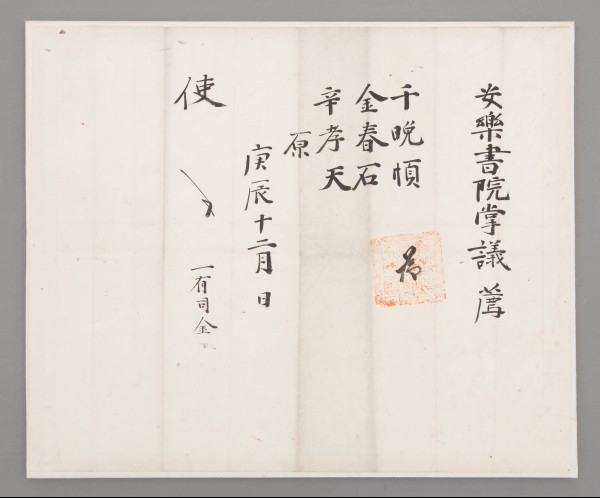 安樂書院掌議薦
千晩愼
金春石
辛孝天
原
庚辰十二月 日
一有司金
使